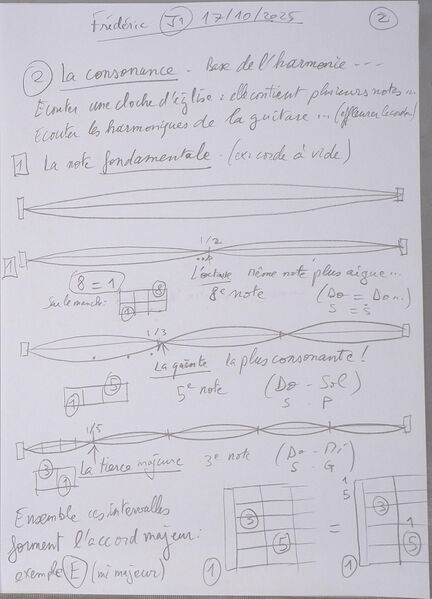 Frédéric J1 17/10/2025 2
2 La consonance - Base de l'harmonie ---
Ecouter une cloche d'église : elle contient plusieurs notes...
Ecouter les harmoniques de la guitare ... (effleurer la corde)
1 La note fondamentale - (ex: corde à vide)
1/2
1
8 = 1
L'octave même note plus aigue...
Sur le manche:
8
1
8e note
(Do = Do...)
S = S
1/3
La quinte la plus consonante !
5
1
5e note
(Do - Sol)
S - P
1/5
3
1
La tierce majeure 3e note
(Do - Mi)
S - G
Ensemble ces intervalles
forment l'accord majeur :
exemple E (mi majeur)
3
5
1
=
1
5
3
1
5
1